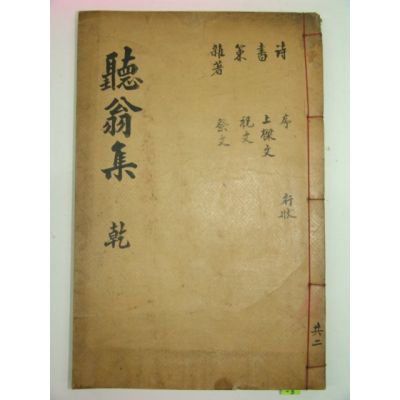 聽翁集 乾
詩 序
書 上樑文 行狀
策 祝文
雜著 祭文
共二